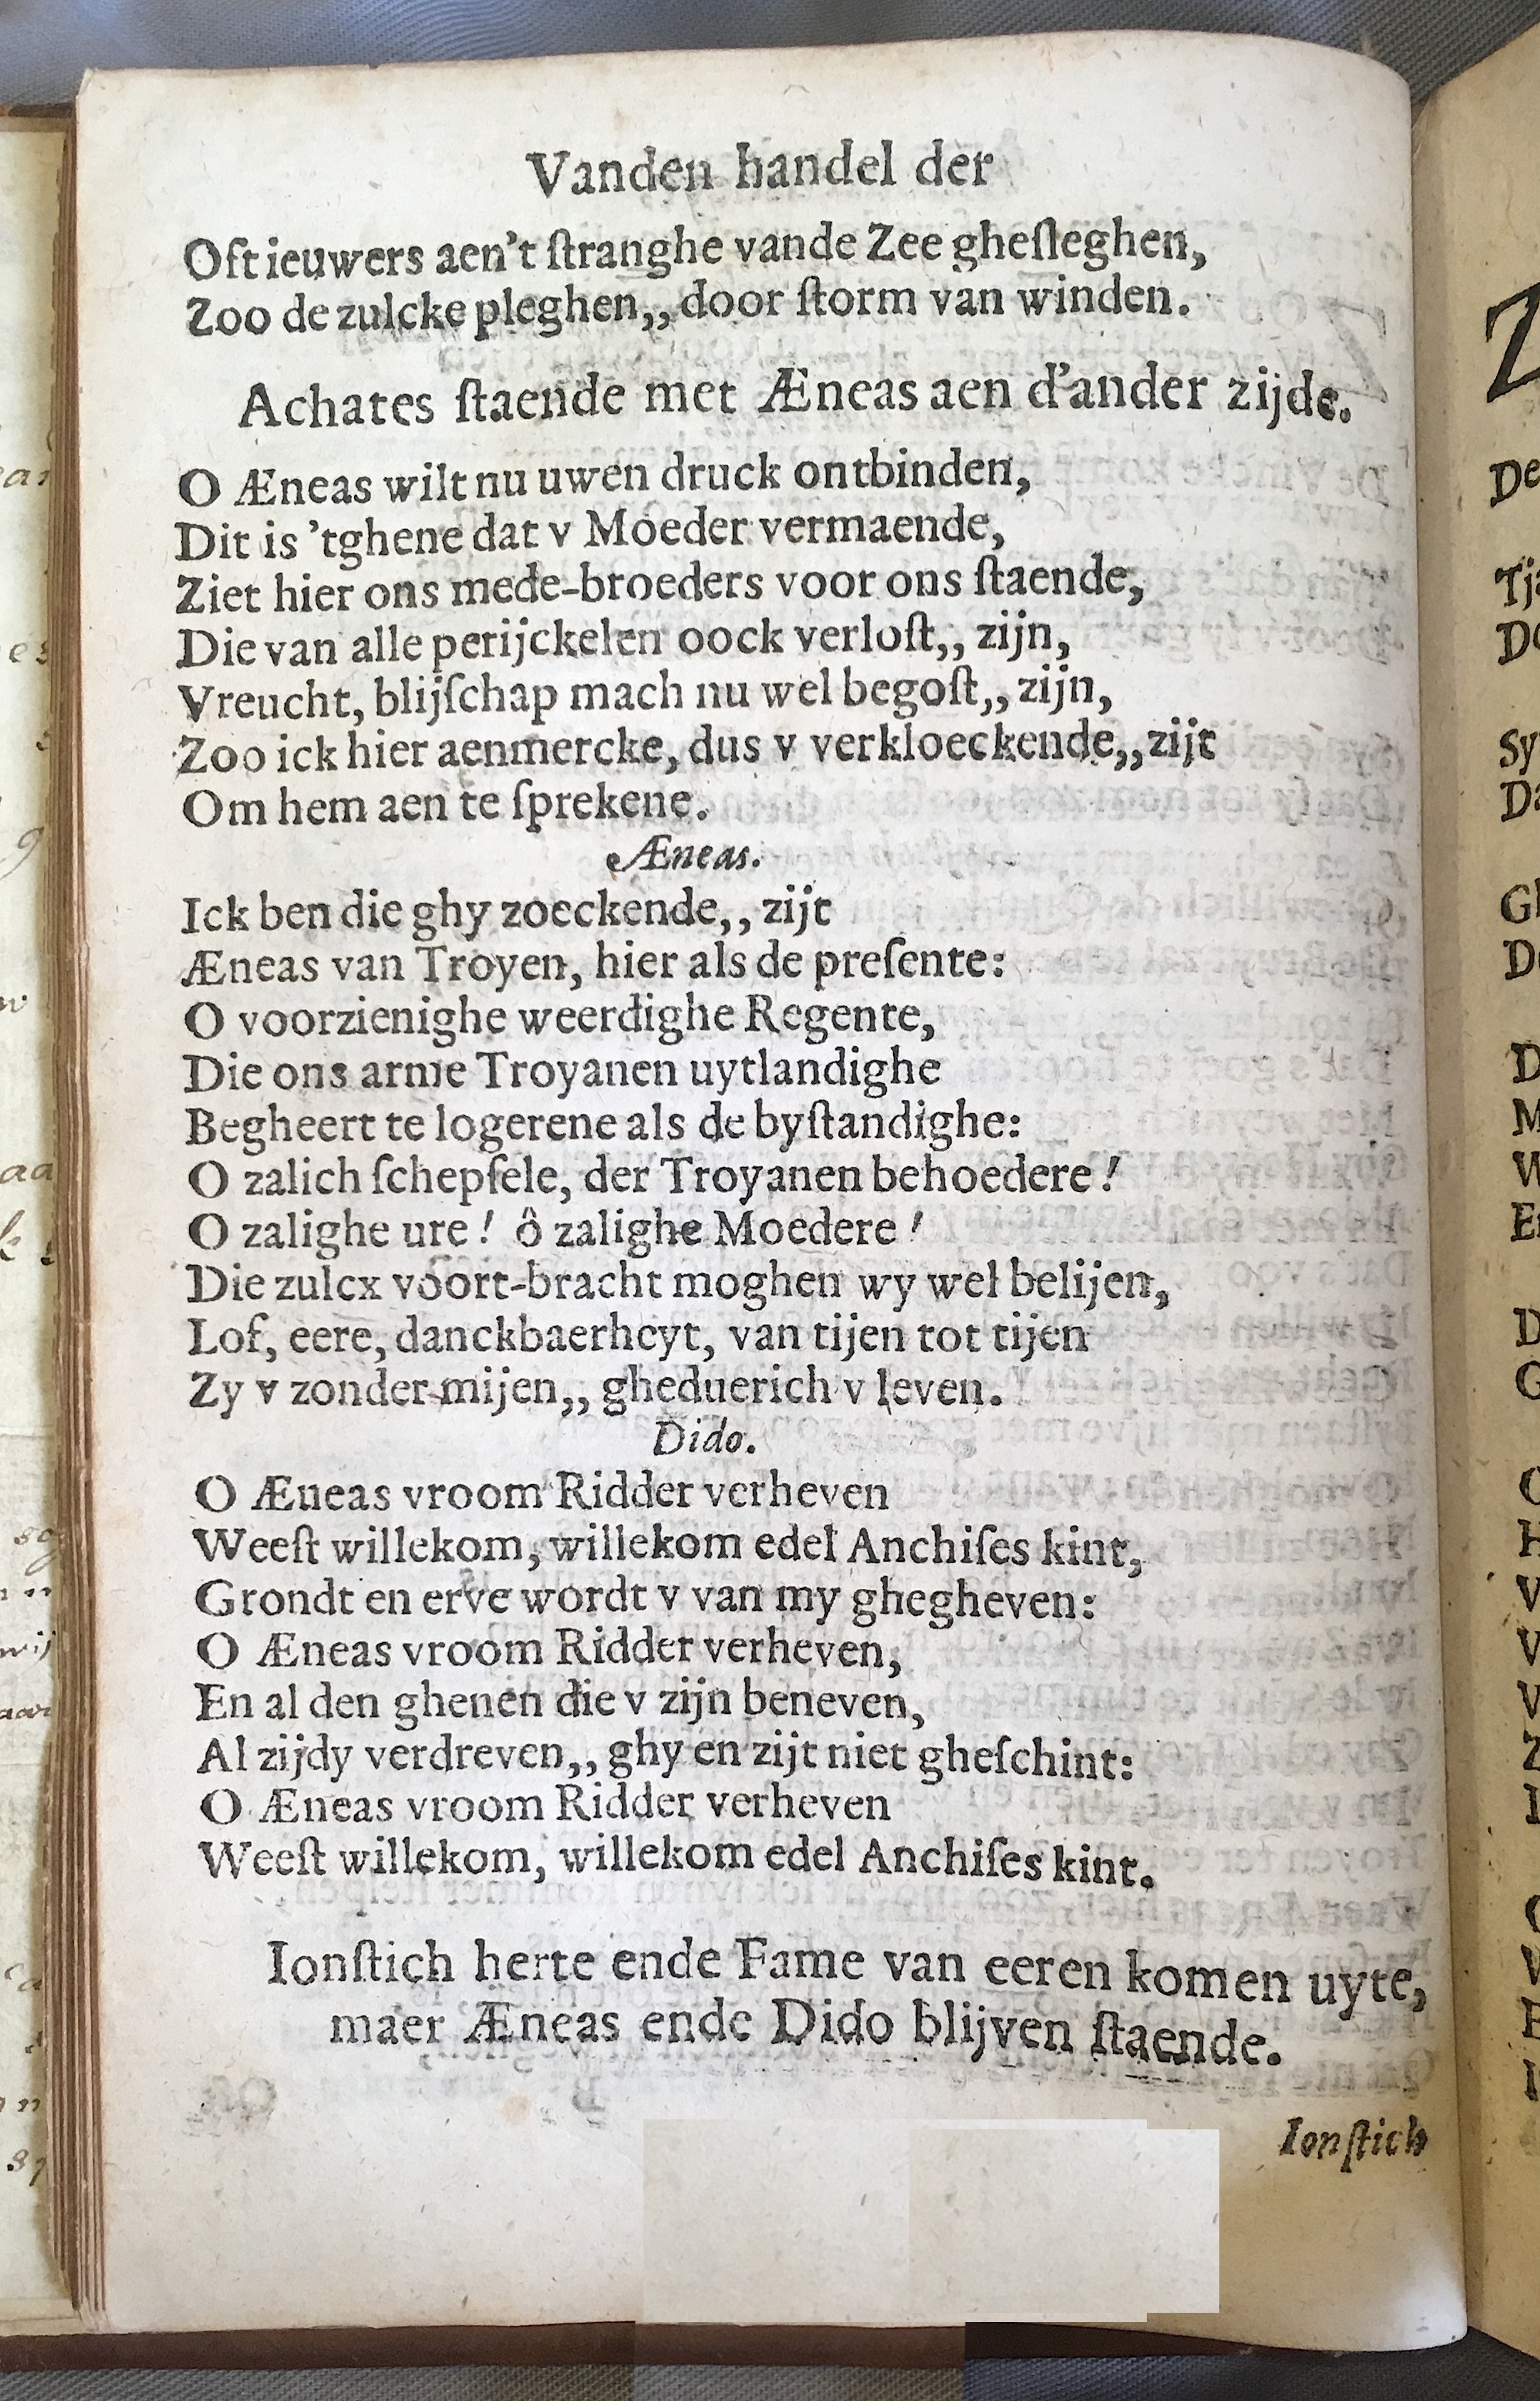 Vanden handel der
Oft ieuwers aen't ſtranghe vande Zee gheſleghen,
Zoo de zulcke pleghen,, door ſtorm van winden.
Achates ſtaende met Æneas aen d'ander zijde.
O Æneas wilt nu uwen druck ontbinden,
Dit is 'tghene dat v Moeder vermaende,
Ziet hier ons mede-broeders voor ons ſtaende,
Die van alle perijckelen oock verloſt,, zijn,
Vreucht, blijſchap mach nu wel begoſt,, zijn,
Zoo ick hier aenmercke, dus v verkloeckende,, zijt
Om hem aen te ſprekene.
Æneas.
Ick ben die ghy zoeckende,, zijt
Æneas van Troyen, hier als de preſente:
O voorzienighe weerdighe Regente,
Die ons arme Troyanen uytlandighe
Begheert te logerene als de byſtandighe:
O zalich ſchepſele, der Troyanen behoedere!
O zalighe ure! ô zalighe Moedere!
Die zulcx voort-bracht moghen wy wel belijen,
Lof, eere, danckbaerheyt, van tijen tot tijen
Zy v zonder mijen,, gheduerich v leven.
Dido.
O Æueas vroom Ridder verheven
Weeſt willekom, willekom edel Anchiſes kint,
Grondt en erve wordt v van my ghegheven:
O Æneas vroom Ridder verheven,
En al den ghenen die v zijn beneven,
Al zijdy verdreven,, ghy en zijt niet gheſchint:
O Æneas vroom Ridder verheven
Weeſt willekom, willekom edel Anchiſes kint.
Ionſtich herte ende Fame van eeren komen uyte,
maer Æneas ende Dido blijven ſtaende.
Ionſtich